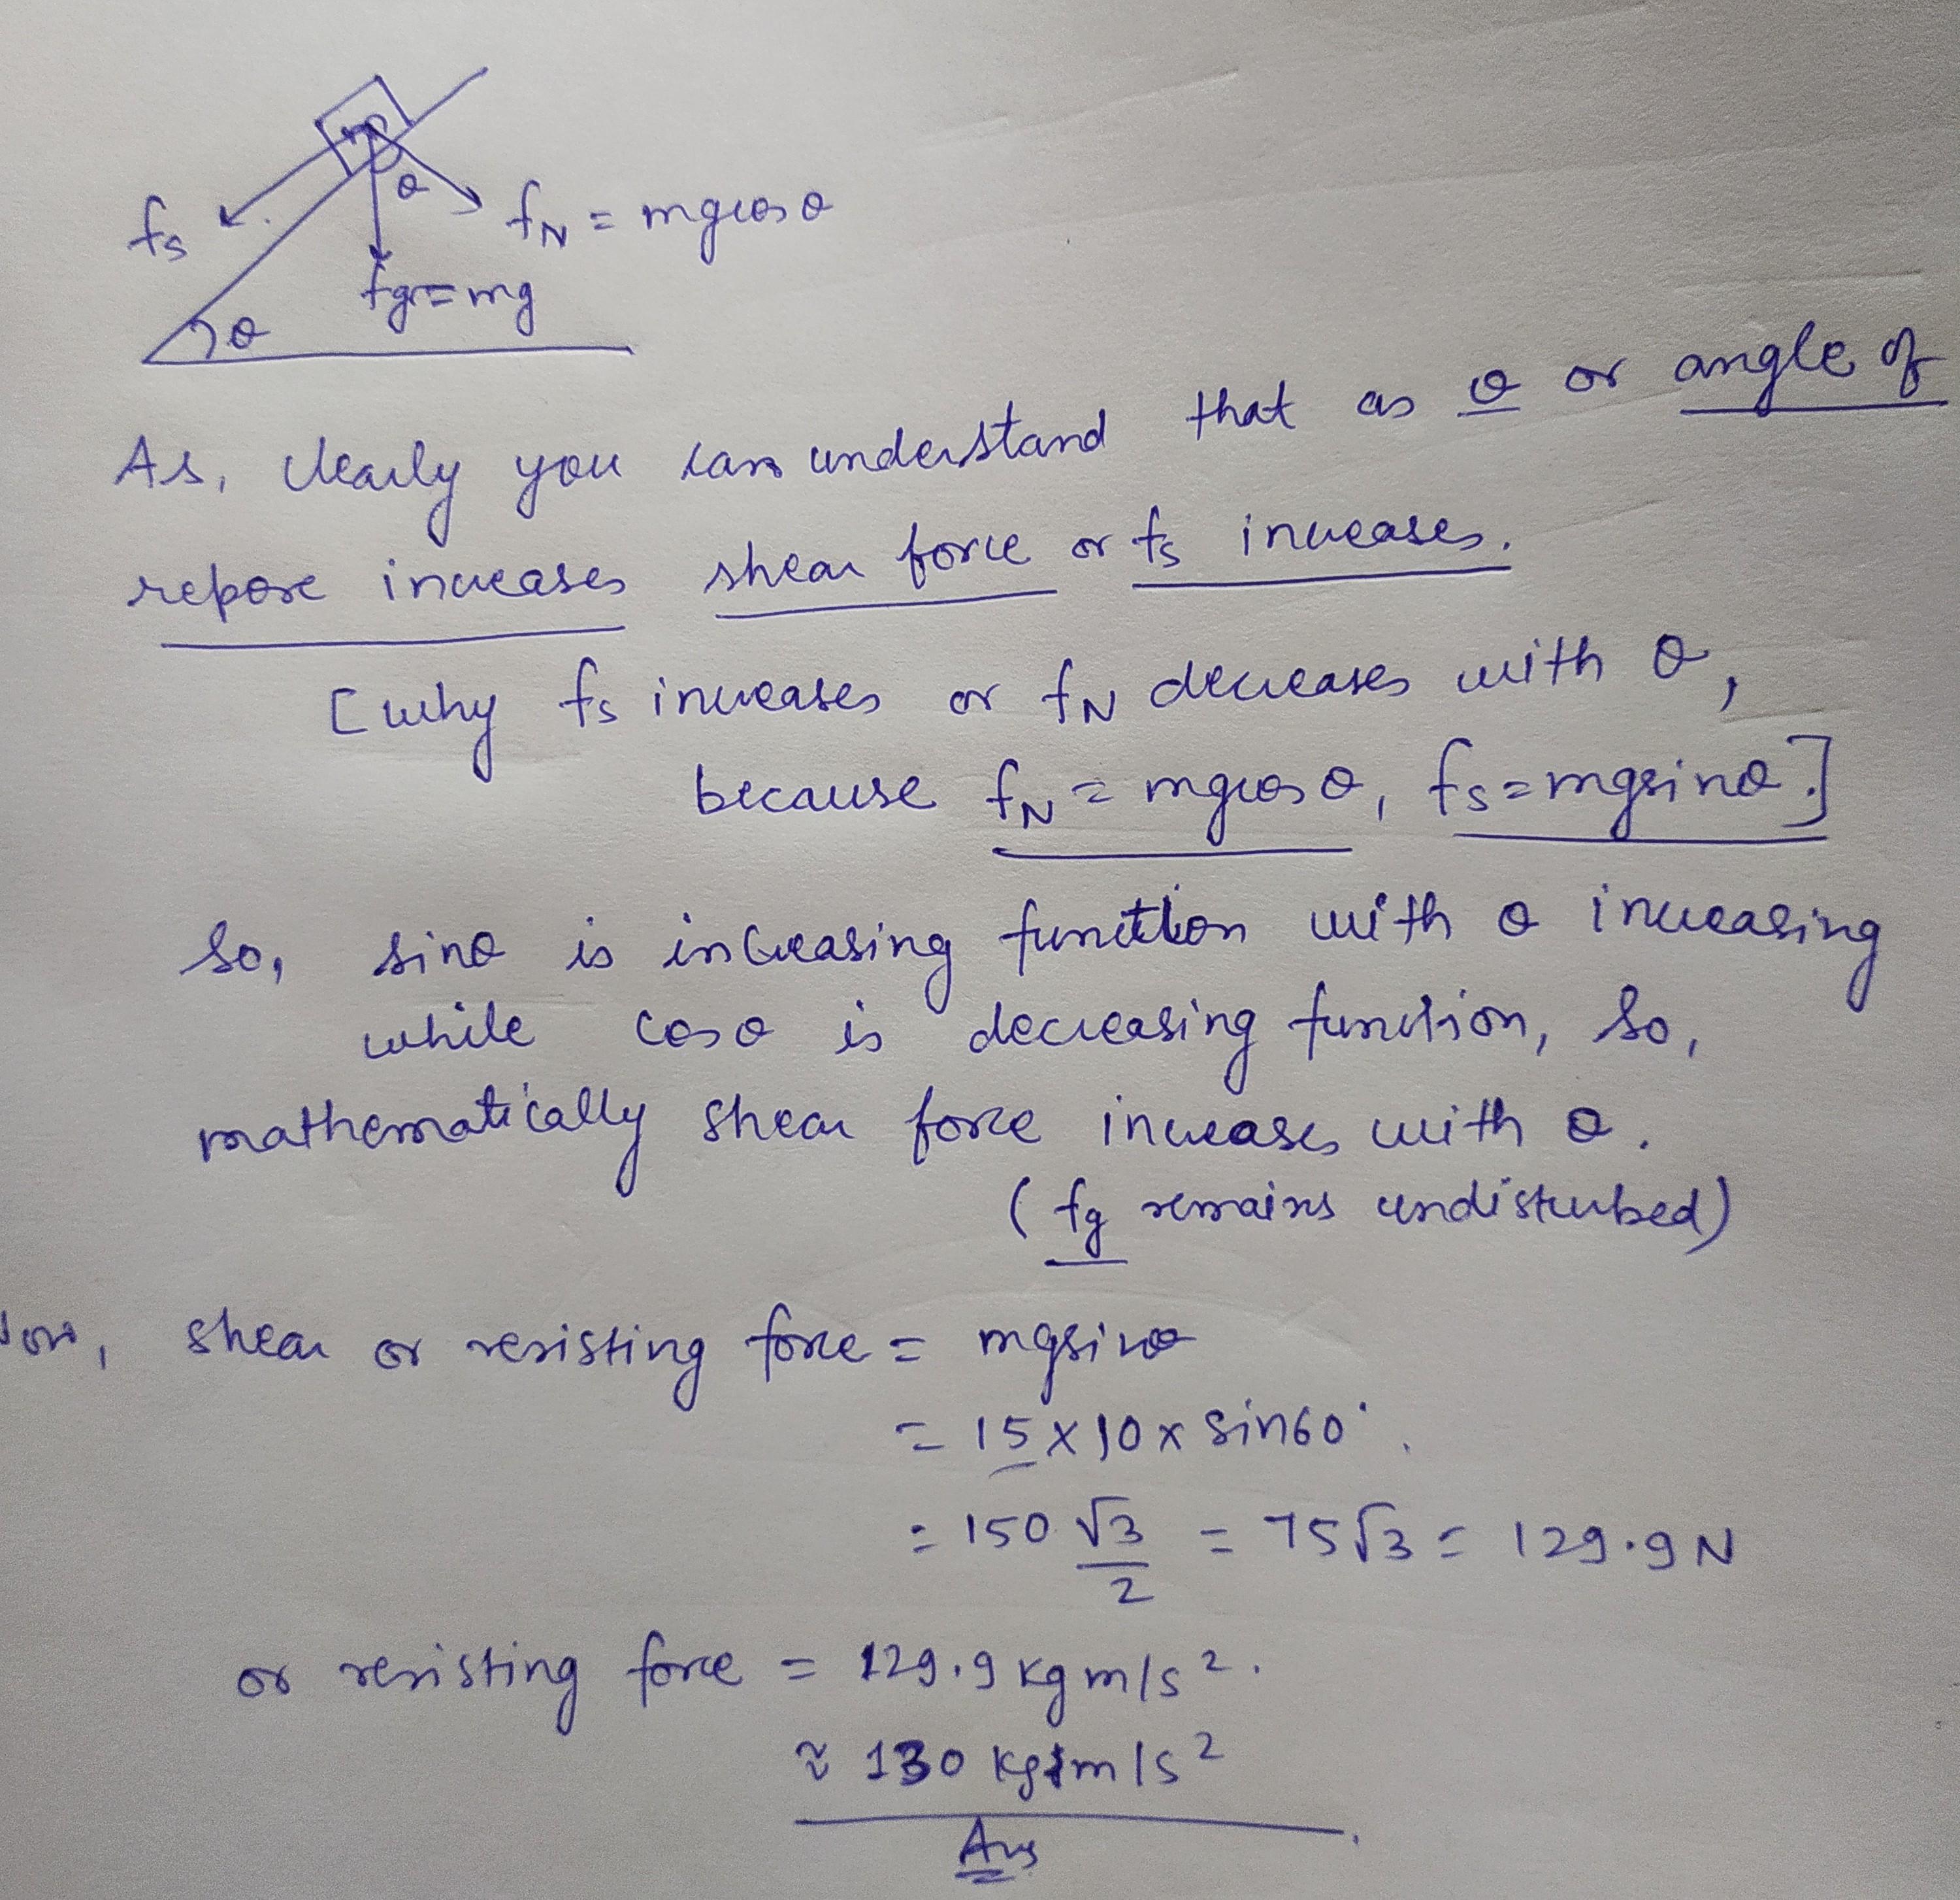 fs
θ
fN = mgcosθ
fg = mg
θ
As, clearly you can understand that as θ or angle of
repose increases shear force or fs increases.
[why fs increases or fN decreases with θ,
because fN = mgcosθ, fs = mgsinθ.]
So, sinθ is increasing function with θ increasing
while cosθ is decreasing function, So,
mathematically shear force increases with θ.
(fg remains undisturbed)
shear or resisting force = mgsinθ
= 15 x 10 x sin60°.
= 150 √3/2 = 75√3 = 129.9 N
or resisting force = 129.9 kg m/s².
≈ 130 kg m/s²
Ans